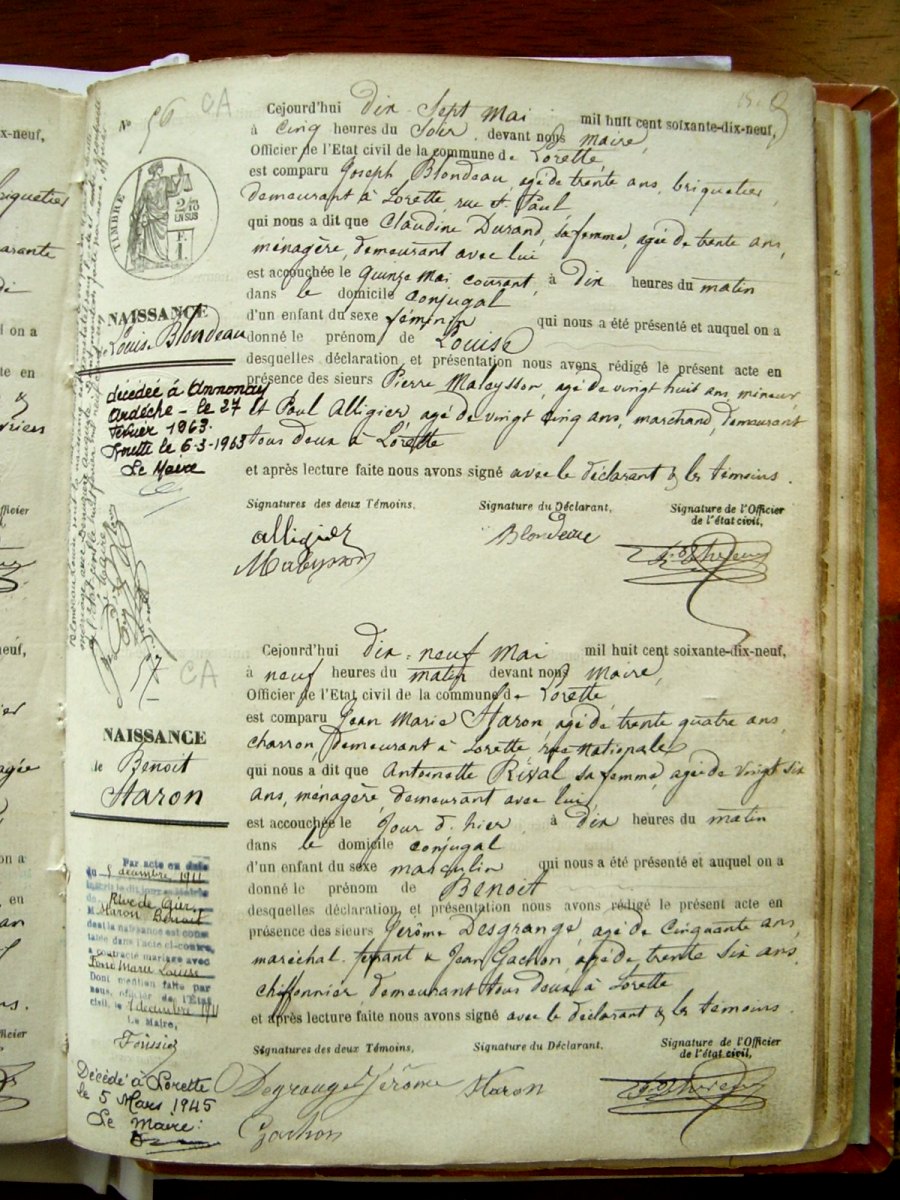 x-neuf,
riquetier
arante
l on a
te en
vrices
fficier
,
neuf,
ier
agée
on a
, en
an
ns.
fficier
Nº 56 CA
Cejourd'hui dix Sept mai mil huit cent soixante-dix-neuf,
à Cinq heures du Soir devant nous maire,
Officier de l'Etat civil de la commune de Lorette,
est comparu Joseph Blondeau, agé de trente ans, briquetier,
demeurant à Lorette rue St Paul
qui nous a dit que Claudine Durand, sa femme, agée de trente ans,
ménagère, demeurant avec lui
est accouchée le quinze mai courant, à Dix heures du matin
dans le domicile conjugal
d'un enfant du sexe féminin qui nous a été présenté et auquel on a
donné le prénom de Louise
desquelles déclaration et présentation nous avons rédigé le présent acte en
présence des sieurs Pierre Maleysson, agé de vingt huit ans, mineur,
et Paul Alligier agé de vingt cinq ans, marchand, demeurant
tous deux à Lorette
et après lecture faite nous avons signé avec le déclarant & les témoins.
Signatures des deux Témoins, Signature du Déclarant, Signature de l'Officier
de l'état civil,
Alligier Blondeau
Maleysson
TIMBRE
2/10
EN SUS
F.
1.
NAISSANCE
Louise Blondeau
décédée à Annonay
Ardèche - le 27
février 1963.
Lorette le 6-3-1963
Le Maire
57 CA
Cejourd'hui dix-neuf mai mil huit cent soixante-dix-neuf,
à neuf heures du matin devant nous Maire,
Officier de l'Etat civil de la commune de Lorette
est comparu Jean Marie Haron, agé de trente quatre ans
charron, demeurant à Lorette, rue nationale
qui nous a dit que Antoinette Réval sa femme, agée de vingt six
ans, ménagère, demeurant avec lui,
est accouchée le jour d'hier, à dix heures du matin
dans le domicile conjugal
d'un enfant du sexe masculin qui nous a été présenté et auquel on a
donné le prénom de Benoit
desquelles déclaration et présentation nous avons rédigé le présent acte en
présence des sieurs Jérôme Desgrange, agé de Cinquante ans,
maréchal-ferrant & Jean Gachon, agé de trente Six ans,
chiffonnier, demeurant tous deux à Lorette
et après lecture faite nous avons signé avec le déclarant & les témoins.
Signatures des deux Témoins, Signature du Déclarant, Signature de l'Officier
de l'état civil,
Degrange Jérôme Haron
Gachon
NAISSANCE
de Benoit
Haron
Par acte en date
du 5 décembre 1911
inscrit le dit jour
Rive de Gier,
M. Haron Benoit
dont la naissance est cons-
tatée dans l'acte ci-contre,
a contracté mariage avec
Marie Louise
Dont mention faite par
nous, officier de l'État
civil, le 7 décembre 1911
Le Maire,
Décédé à Lorette
le 5 Mars 1945
Le Maire: